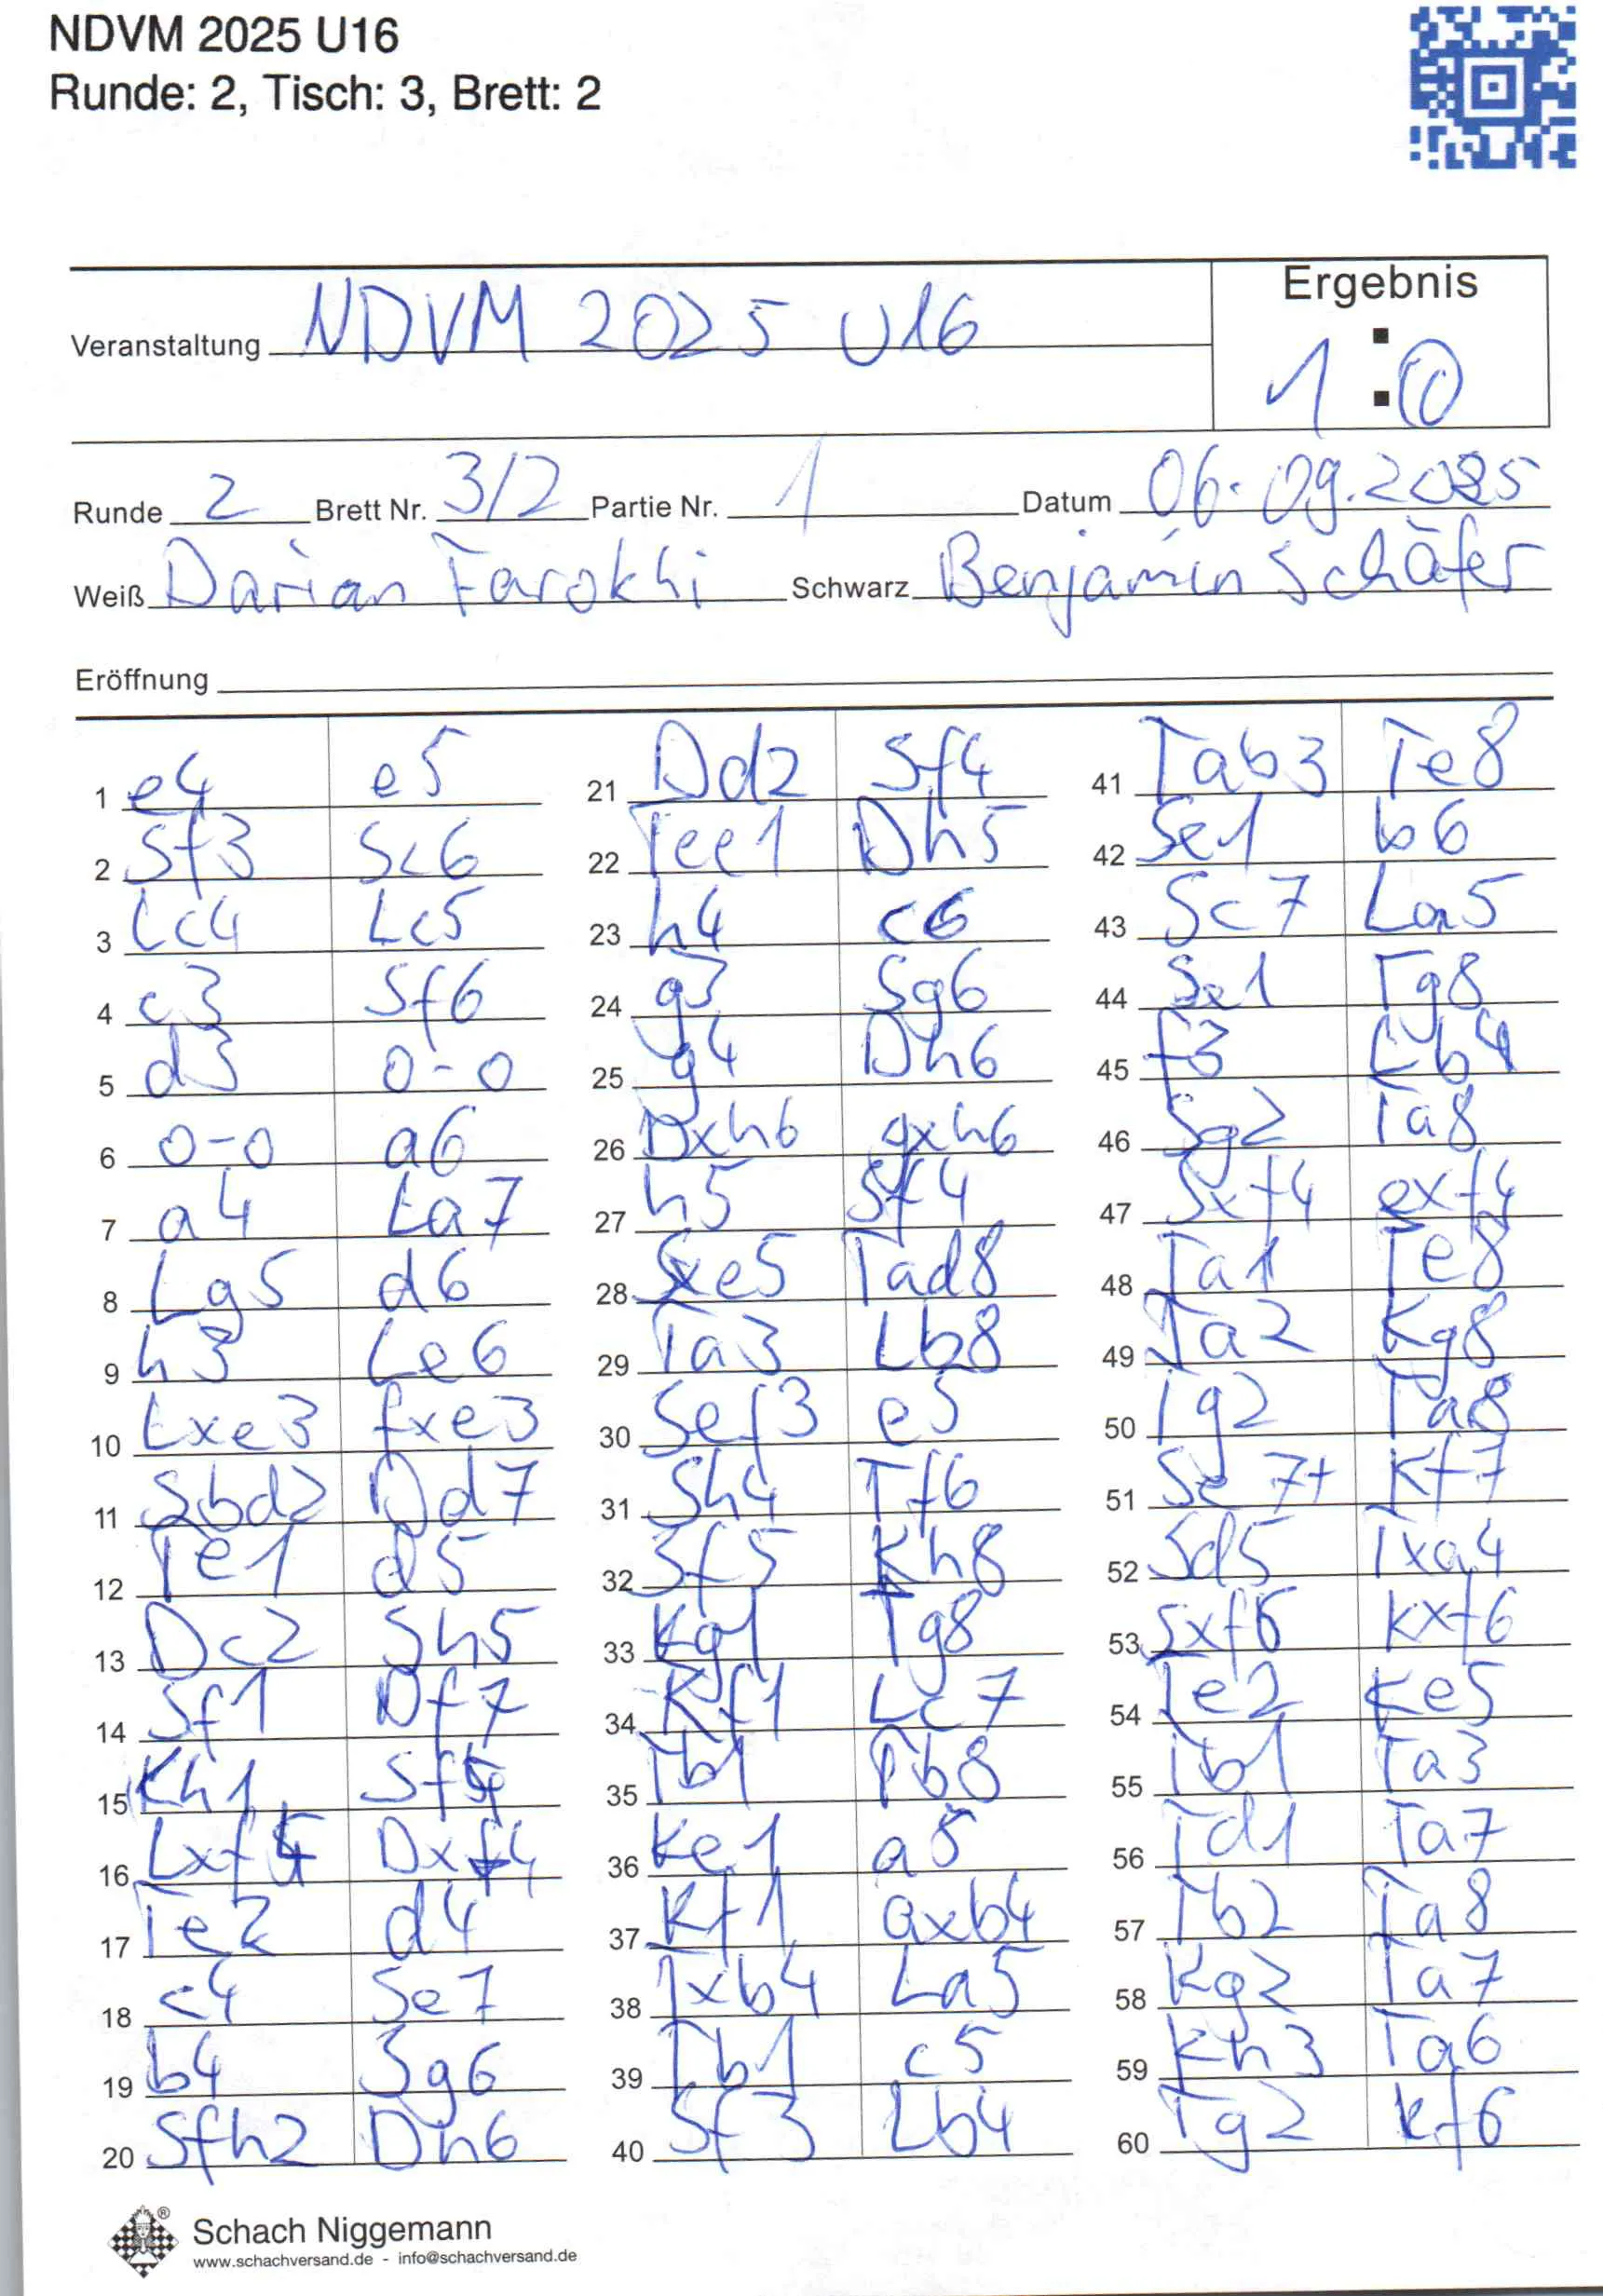 NDVM 2025 U16
Runde: 2, Tisch: 3, Brett: 2
Veranstaltung NDVM 2025 U16
Ergebnis
1:0
Runde 2 Brett Nr. 3/2 Partie Nr. 1 Datum 06.09.2025
Weiß Darian Farokhi Schwarz Benjamin Schäfer
Eröffnung
1 e4 e5
2 Sf3 Sc6
3 Lc4 Lc5
4 c3 Sf6
5 d3 0-0
6 0-0 a6
7 a4 La7
8 Lg5 d6
9 h3 Le6
10 Lxe3 fxe3
11 Sbd2 Dd7
12 Te1 d5
13 Dc2 Sh5
14 Sf1 Df7
15 Kh1 Sf4
16 Lxf4 Dxf4
17 Te2 d4
18 c4 Se7
19 b4 Sg6
20 Sfh2 Dh6
21 Dd2 Sf4
22 Tee1 Dh5
23 h4 c6
24 g3 Sg6
25 g4 Dh6
26 Dxh6 gxh6
27 h5 Sf4
28 Sxe5 Tad8
29 Ta3 Lb8
30 Sef3 e5
31 Sh4 Tf6
32 Sf5 Kh8
33 Kg1 Tg8
34 Kf1 Lc7
35 Tb1 Tb8
36 Ke1 a5
37 Kf1 axb4
38 Txb4 La5
39 Tb1 c5
40 Sf3 Lb4
41 Tab3 Te8
42 Se1 b6
43 Sc7 La5
44 Se1 Tg8
45 f3 Lb4
46 Sg2 Ta8
47 Sxf4 exf4
48 Ta1 Te8
49 Ta2 Kg8
50 Tg2 Ta8
51 Se7+ Kf7
52 Sd5 Txa4
53 Sxf6 Kxf6
54 Te2 Ke5
55 Tb1 Ta3
56 Td1 Ta7
57 Tb2 Ta8
58 Kg2 Ta7
59 Kh3 Ta6
60 Tg2 Kf6
Schach Niggemann
www.schachversand.de - info@schachversand.de